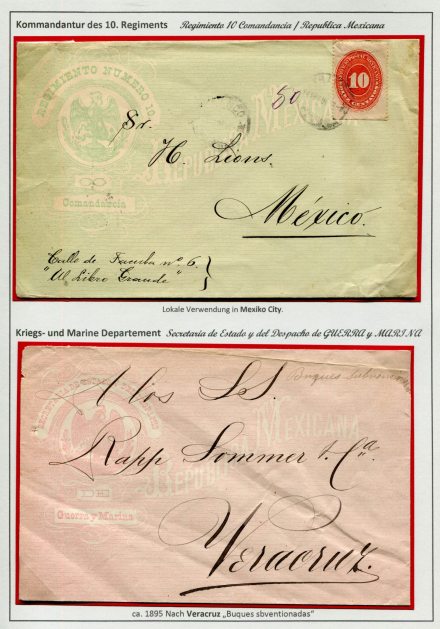 Kommandantur des 10. Regiments Regimiento 10 Comandancia / Republica Mexicana
REGIMIENTO NUMERO 10
REPUBLICA MEXICANA
Comandancia
10
50
Sr.
H. Lions.
México.
Calle de Tacuba nº 6.
"Al Libro Grande"
Lokale Verwendung in Mexiko City.
Kriegs- und Marine Departement Secretaria de Estado y del Despacho de GUERRA y MARINA
Buques
A los S.S.
REPUBLICA MEXICANA
DE
Guerra y Marina
Rapp Sommer y Cª.
Veracruz.
ca. 1895 Nach Veracruz „Buques sbventionadas“